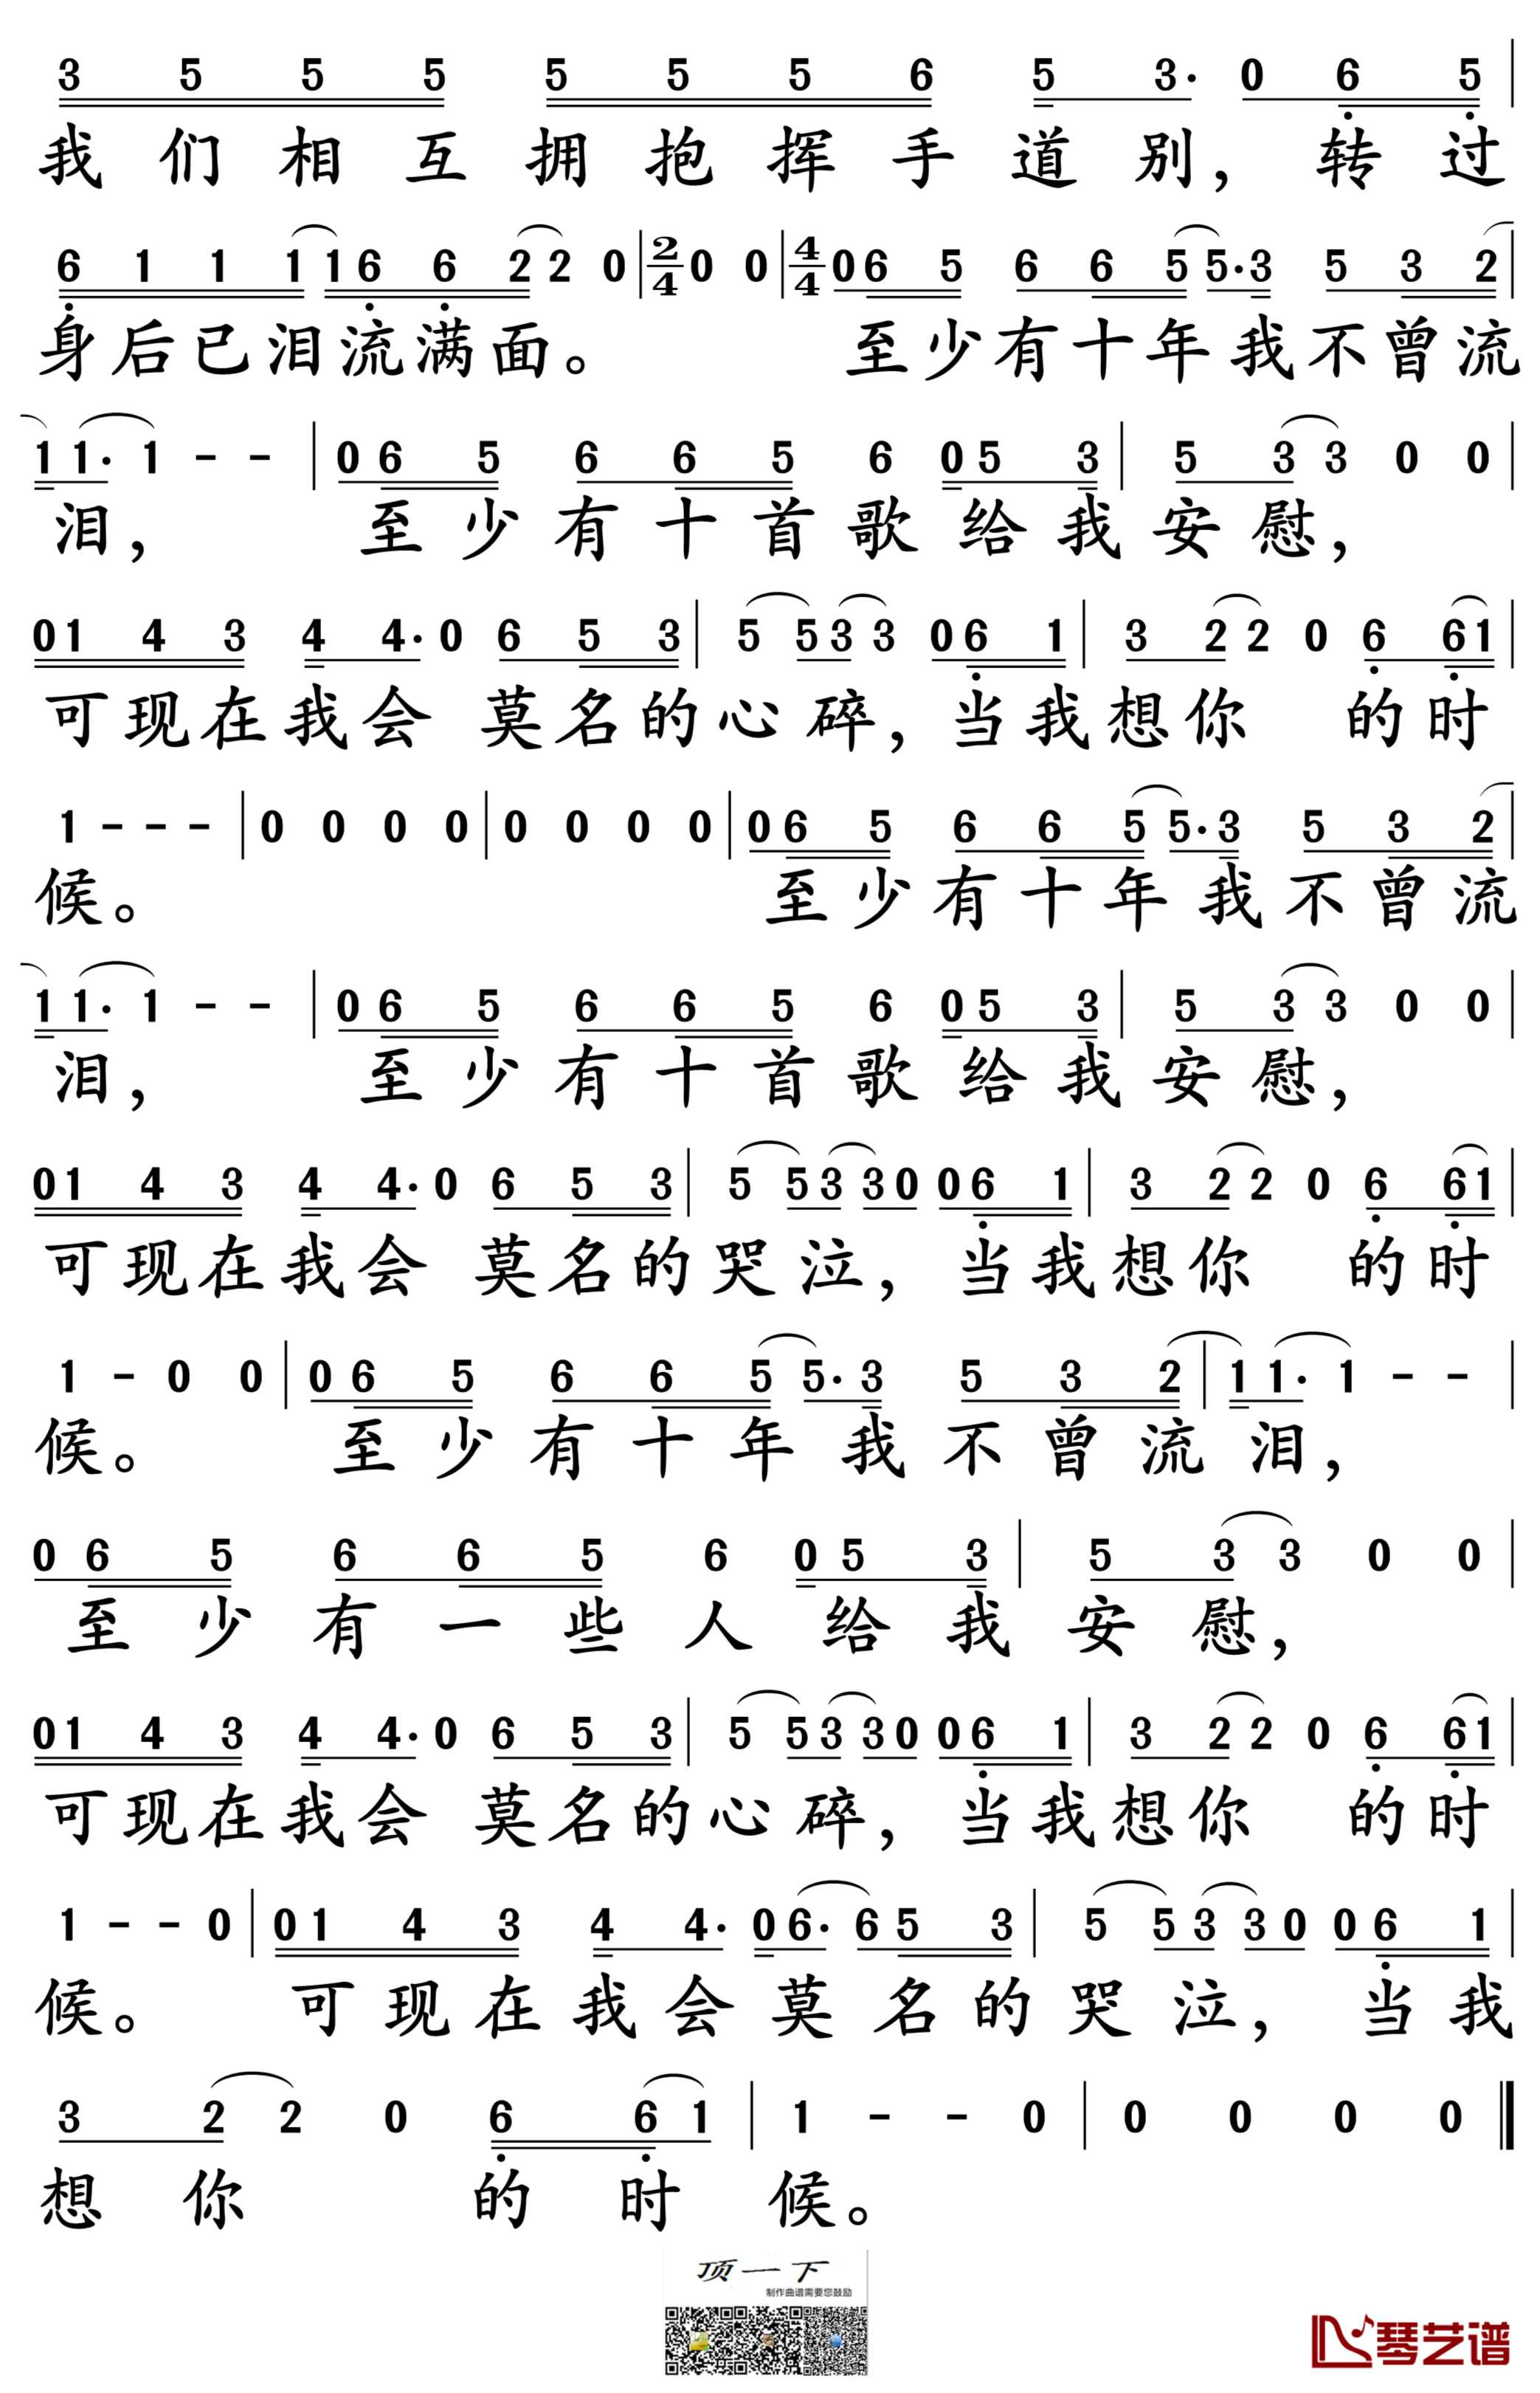 3 5 5 5 5 5 5 6 5 3· 0 6 5
我们相互拥抱挥手道别，转过
6 1 1 1 1 6 6 2 2 0 2/4 0 0 4/4 0 6 5 6 6 5 5· 3 5 3 2
身后已泪流满面。 至少有十年我不曾流
1 1· 1 - - 0 6 5 6 6 5 6 0 5 3 5 3 3 0 0
泪， 至少有十首歌给我安慰，
0 1 4 3 4 4· 0 6 5 3 5 5 3 3 0 6 1 3 2 2 0 6 6 1
可现在我会 莫名的心碎，当我想你 的时
1 - - - 0 0 0 0 0 0 0 0 0 6 5 6 6 5 5· 3 5 3 2
候。 至少有十年我不曾流
1 1· 1 - - 0 6 5 6 6 5 6 0 5 3 5 3 3 0 0
泪， 至少有十首歌给我安慰，
0 1 4 3 4 4· 0 6 5 3 5 5 3 3 0 0 6 1 3 2 2 0 6 6 1
可现在我会 莫名的哭泣，当我想你 的时
1 - 0 0 0 6 5 6 6 5 5· 3 5 3 2 1 1· 1 - -
候。 至少有十年我不曾流泪，
0 6 5 6 6 5 6 0 5 3 5 3 3 0 0
至少有一些人给我安慰，
0 1 4 3 4 4· 0 6 5 3 5 5 3 3 0 0 6 1 3 2 2 0 6 6 1
可现在我会 莫名的心碎，当我想你 的时
1 - - 0 0 1 4 3 4 4· 0 6· 6 5 3 5 5 3 3 0 0 6 1
候。 可现在我会莫名的哭泣，当我
3 2 2 0 6 6 1 1 - - 0 0 0 0 0
想你 的时候。
顶一下
制作曲谱需要您鼓励
琴艺谱